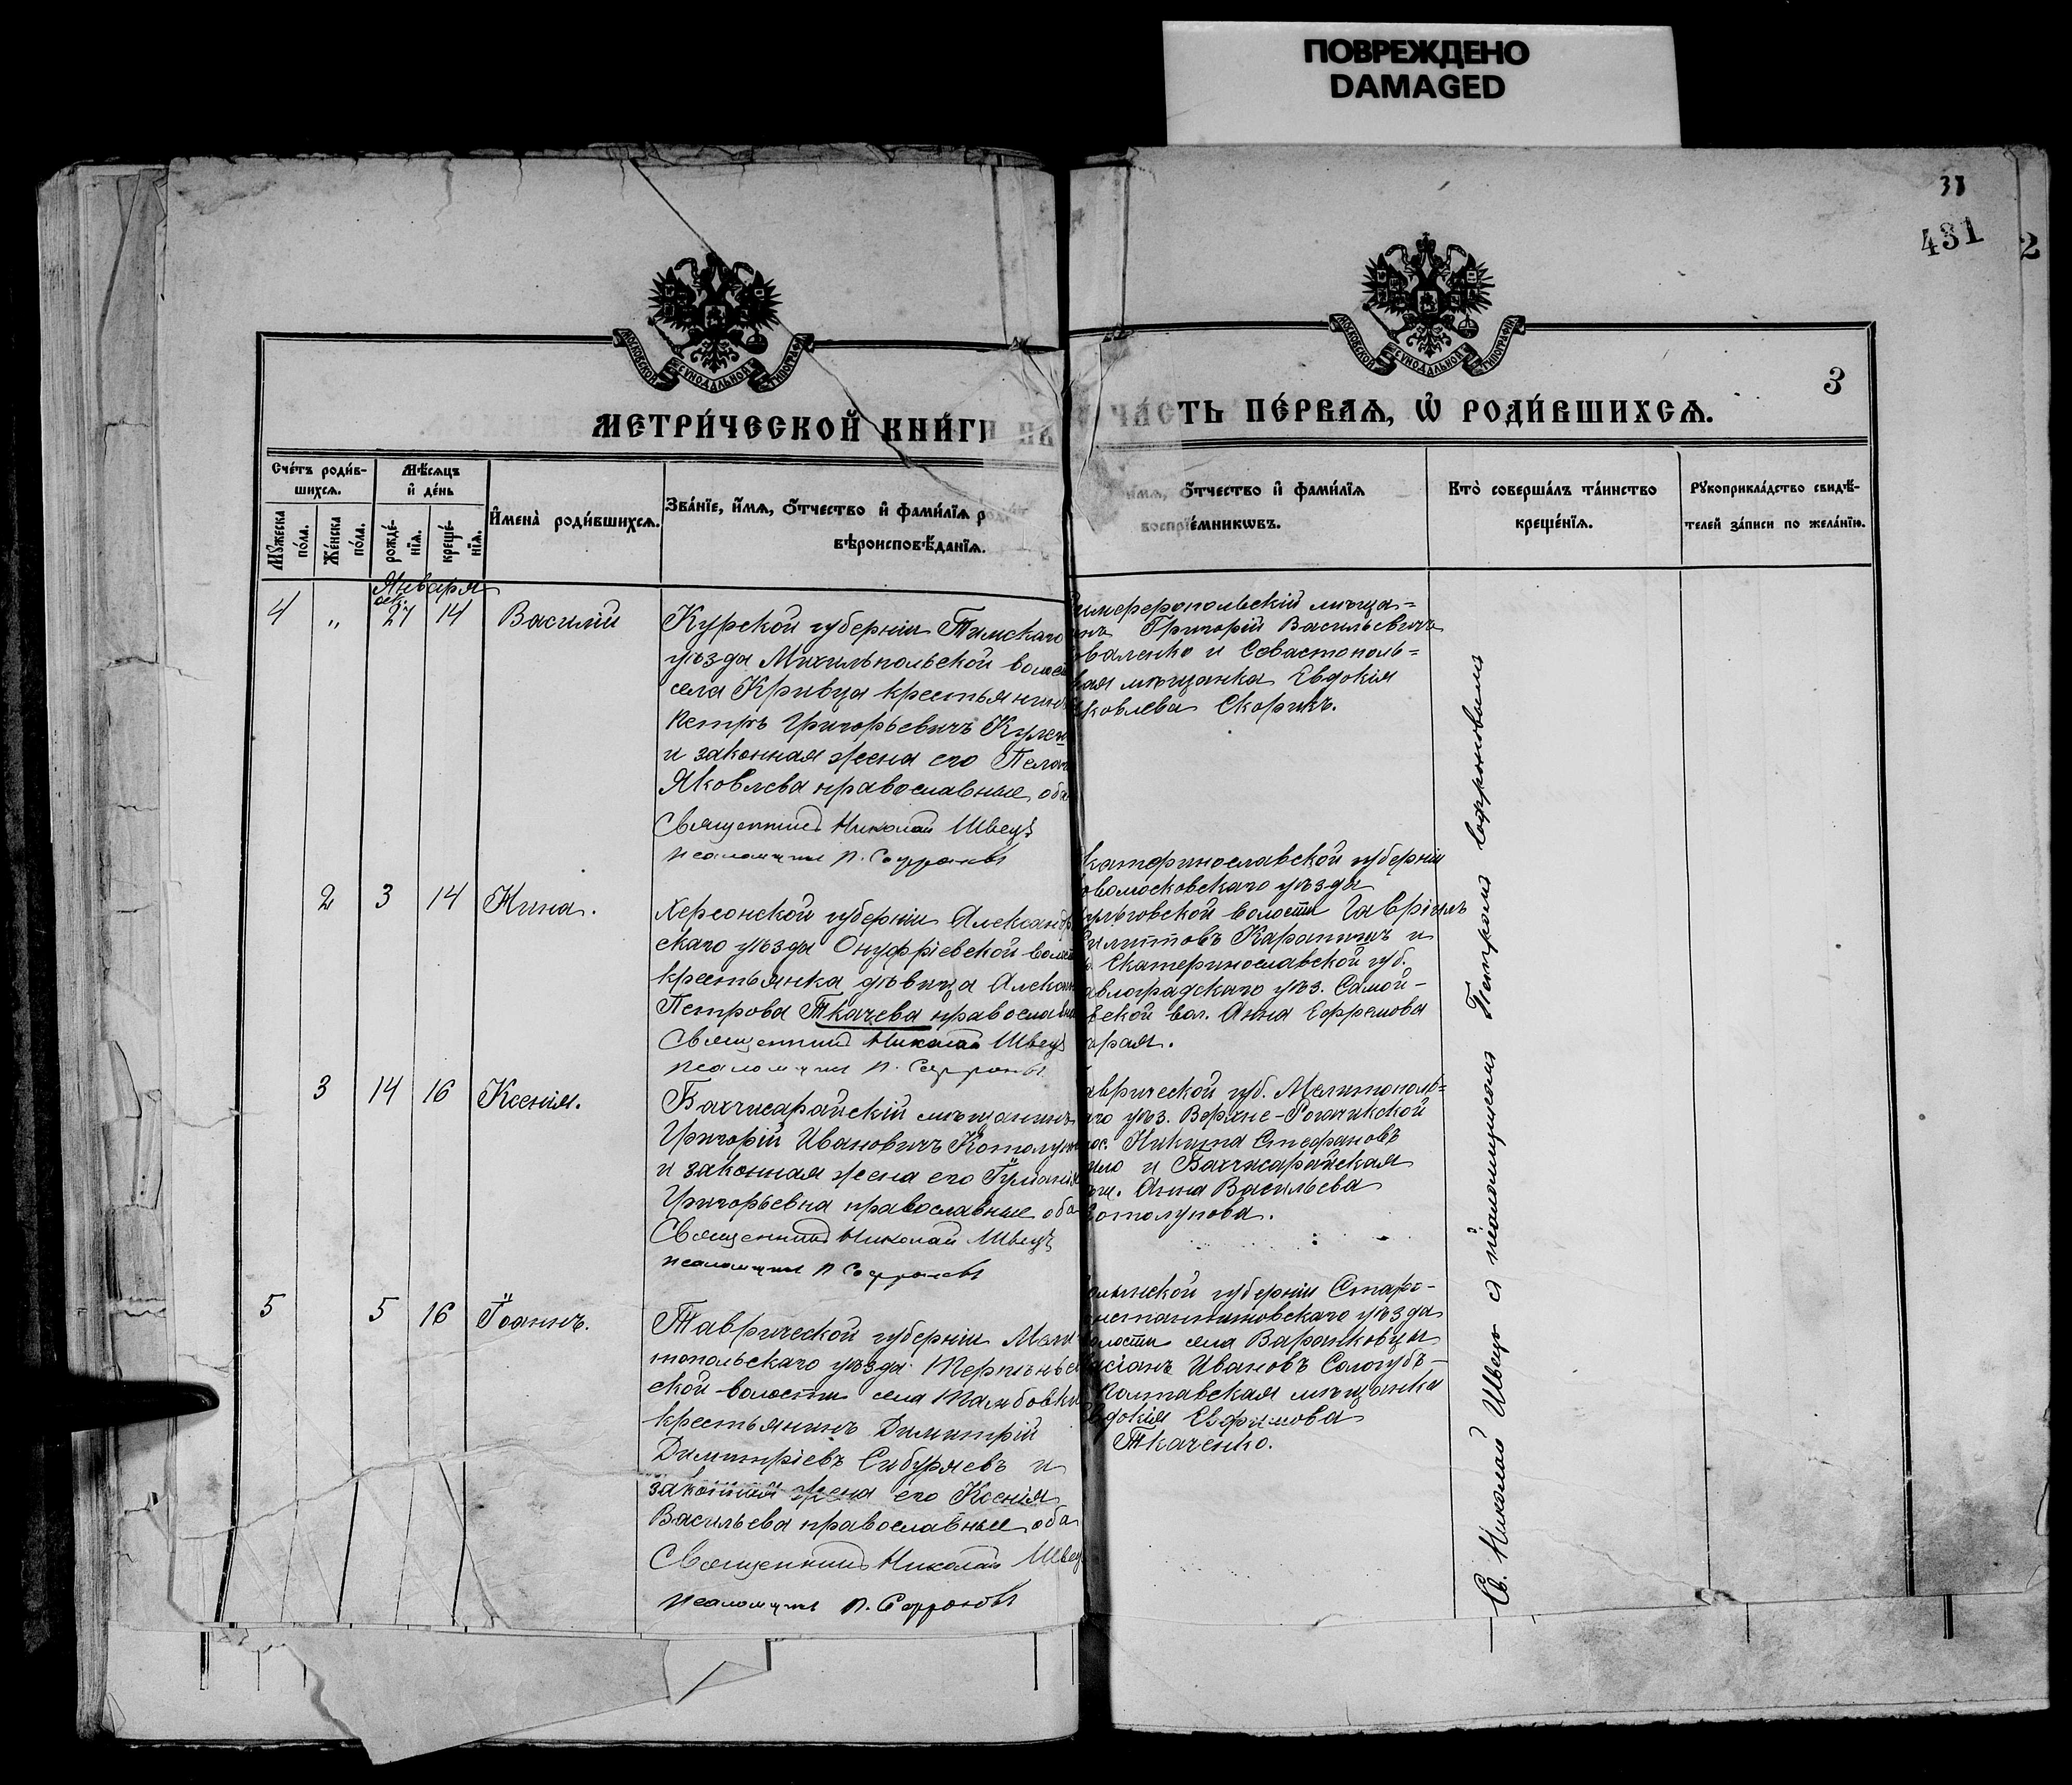 ПОВРЕЖДЕНО
DAMAGED
431
2
3
МОСКОВСКОЙ СУНОДАЛЬНОЙ ТИПОГРАФІИ
МОСКОВСКОЙ СУНОДАЛЬНОЙ ТИПОГРАФІИ
МЕТРИ́ЧЕСКОЙ КНИ́ГИ НА
ЧА́СТЬ ПЕ́РВАѦ, Ѡ҆ РОДИ́ВШИХСѦ.
Сче́тъ роди́в-
шихсѧ.
Му́жеска по́ла.
Же́нска по́ла.
Мѣ́сѧцъ
и҆ де́нь
рожде́-
нїѧ.
креще́-
нїѧ.
И҆мена̀ роди́вшихсѧ.
Зва́нїе, и҆́мѧ, ѻ҆́тчество и҆ фами́лїѧ
вѣроисповѣ́данїѧ.
и҆́мѧ, ѻ҆́тчество и҆ фами́лїѧ
воспрїе́мникѡвъ.
Кто̀ соверша́лъ та́инство
креще́нїѧ.
Рꙋкоприкла́дство свидѣ́-
телей за́писи по жела́нїю.
Января
4 " дек. 27 14 Василий
Курской губерніи Тимскаго
уѣзда Михильпольской волост
села Кривца крестьянинъ
Петръ Григорьевичъ
и законная жена его Пелаг
Яковлева православные оба
Священникъ Николай Швецъ
псаломщикъ П. Софроновъ
имферопольскій мѣща=
инъ Григорій Васильевичъ
оваленко и Севастополь=
кая мѣщанка Евдокія
ковлева Скорикъ.
2 3 14 Нина.
Херсонской губерніи Александр
скаго уѣзда Онуфріевской волост
крестьянка дѣвица Алекса
Петрова Ткачева православн
Священникъ Николай Швецъ
псаломщикъ П. Софроновъ
катеринославской губерніи
овомосковскаго уѣзда
ульговской волости Гавріилъ
Филипповъ и
Екатеринославской губ.
авлоградскаго уѣз. Самой-
вской вол. Анна Ефремова
3 14 16 Ксенія.
Бахчисарайскій мѣщанинъ
Григорій Ивановичъ Котолуп
и законная жена его Іуліанія
Григорьевна православные оба
Священникъ Николай Швецъ
псаломщикъ П. Софроновъ
аврической губ. Мелитополь=
аго уѣз. Верхне-Рогачикской
вос. Никита Стефановъ
и Бахчисарайская
мѣщ. Анна Васильева
Котолупова.
5 5 16 Іоаннъ.
Таврической губерніи Мели
топольскаго уѣзда Терпѣньев
ской волости села Тамбовки
крестьянинъ Димитрій
Димитріевъ Сибуряевъ и
законная жена его Ксенія
Васильева православные оба
Священникъ Николай Швецъ
псаломщикъ П. Софроновъ
олынской губерніи Старо-
онстантиновскаго уѣзда
волости села
Ивановъ Сологубъ-
Полтавская мѣщанка
вдокія Евфимова
Ткаченко.
Св. Николай Швецъ съ псаломщикомъ Петромъ Софроновымъ